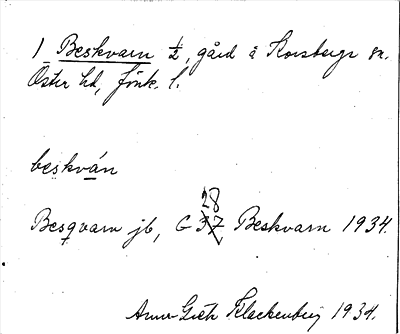 1 Beskvarn ½, gård i Korsberga sn.
Öster hd, Jönk. l.
beskván
Besqvarn jb, G 37 28 Beskvarn 1934.
Anna-Greta Klackenberg 1934.